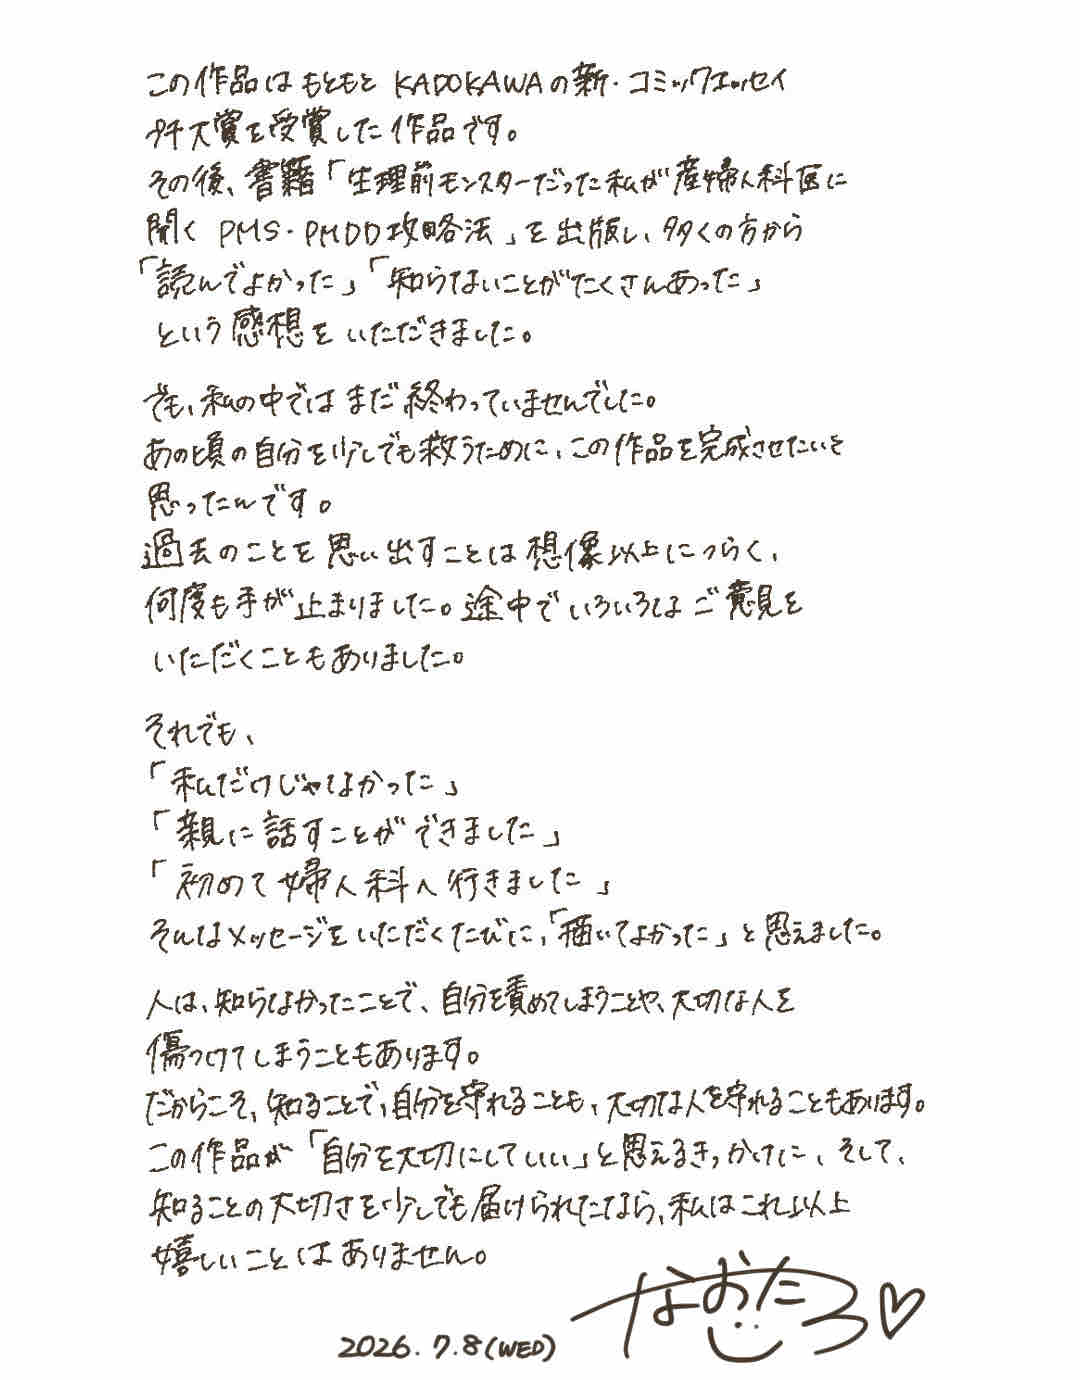 この作品はもともと KADOKAWAの新・コミックエッセイ
プチ大賞を受賞した作品です。
その後、書籍「生理前モンスターだった私が産婦人科医に
聞く PMS・PMDD攻略法」を出版し、多くの方から
「読んでよかった」「知らないことがたくさんあった」
という感想をいただきました。
でも、私の中ではまだ終わっていませんでした。
あの頃の自分を少しでも救うために、この作品を完成させたいと
思ったんです。
過去のことを思い出すことは想像以上につらく、
何度も手が止まりました。途中でいろいろなご意見を
いただくこともありました。
それでも、
「私だけじゃなかった」
「親に話すことができました」
「初めて婦人科へ行きました」
そんなメッセージをいただくたびに、「描いてよかった」と思えました。
人は、知らなかったことで、自分を責めてしまうことや、大切な人を
傷つけてしまうこともあります。
だからこそ、知ることで、自分を守れることも、大切な人を守れることもあります。
この作品が「自分を大切にしていい」と思えるきっかけに、そして、
知ることの大切さを少しでも届けられたなら、私はこれ以上
嬉しいことはありません。
なおたろ♡
2026.7.8(WED)